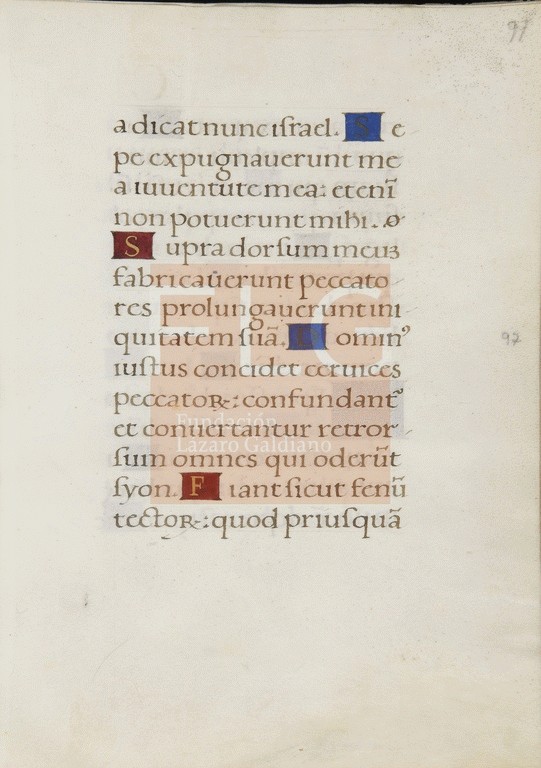 97
a dicat nunc iſrael. S e
pe expugnauerunt me
a iuuentute mea: etenī
non potuerunt mihi.
S upra dorſum meuȝ
fabricauerunt peccato
res prolungauerunt ini
quitatem ſuā. D ominꝰ
97
iuſtus concidet ceruices
peccatoꝝ: confundantᷣ
et conuertantur retror
ſum omnes qui oderūt
ſyon. F iant ſicut fenū
tectoꝝ: quod priuſquā
FLG
Fundación
Lázaro Galdiano